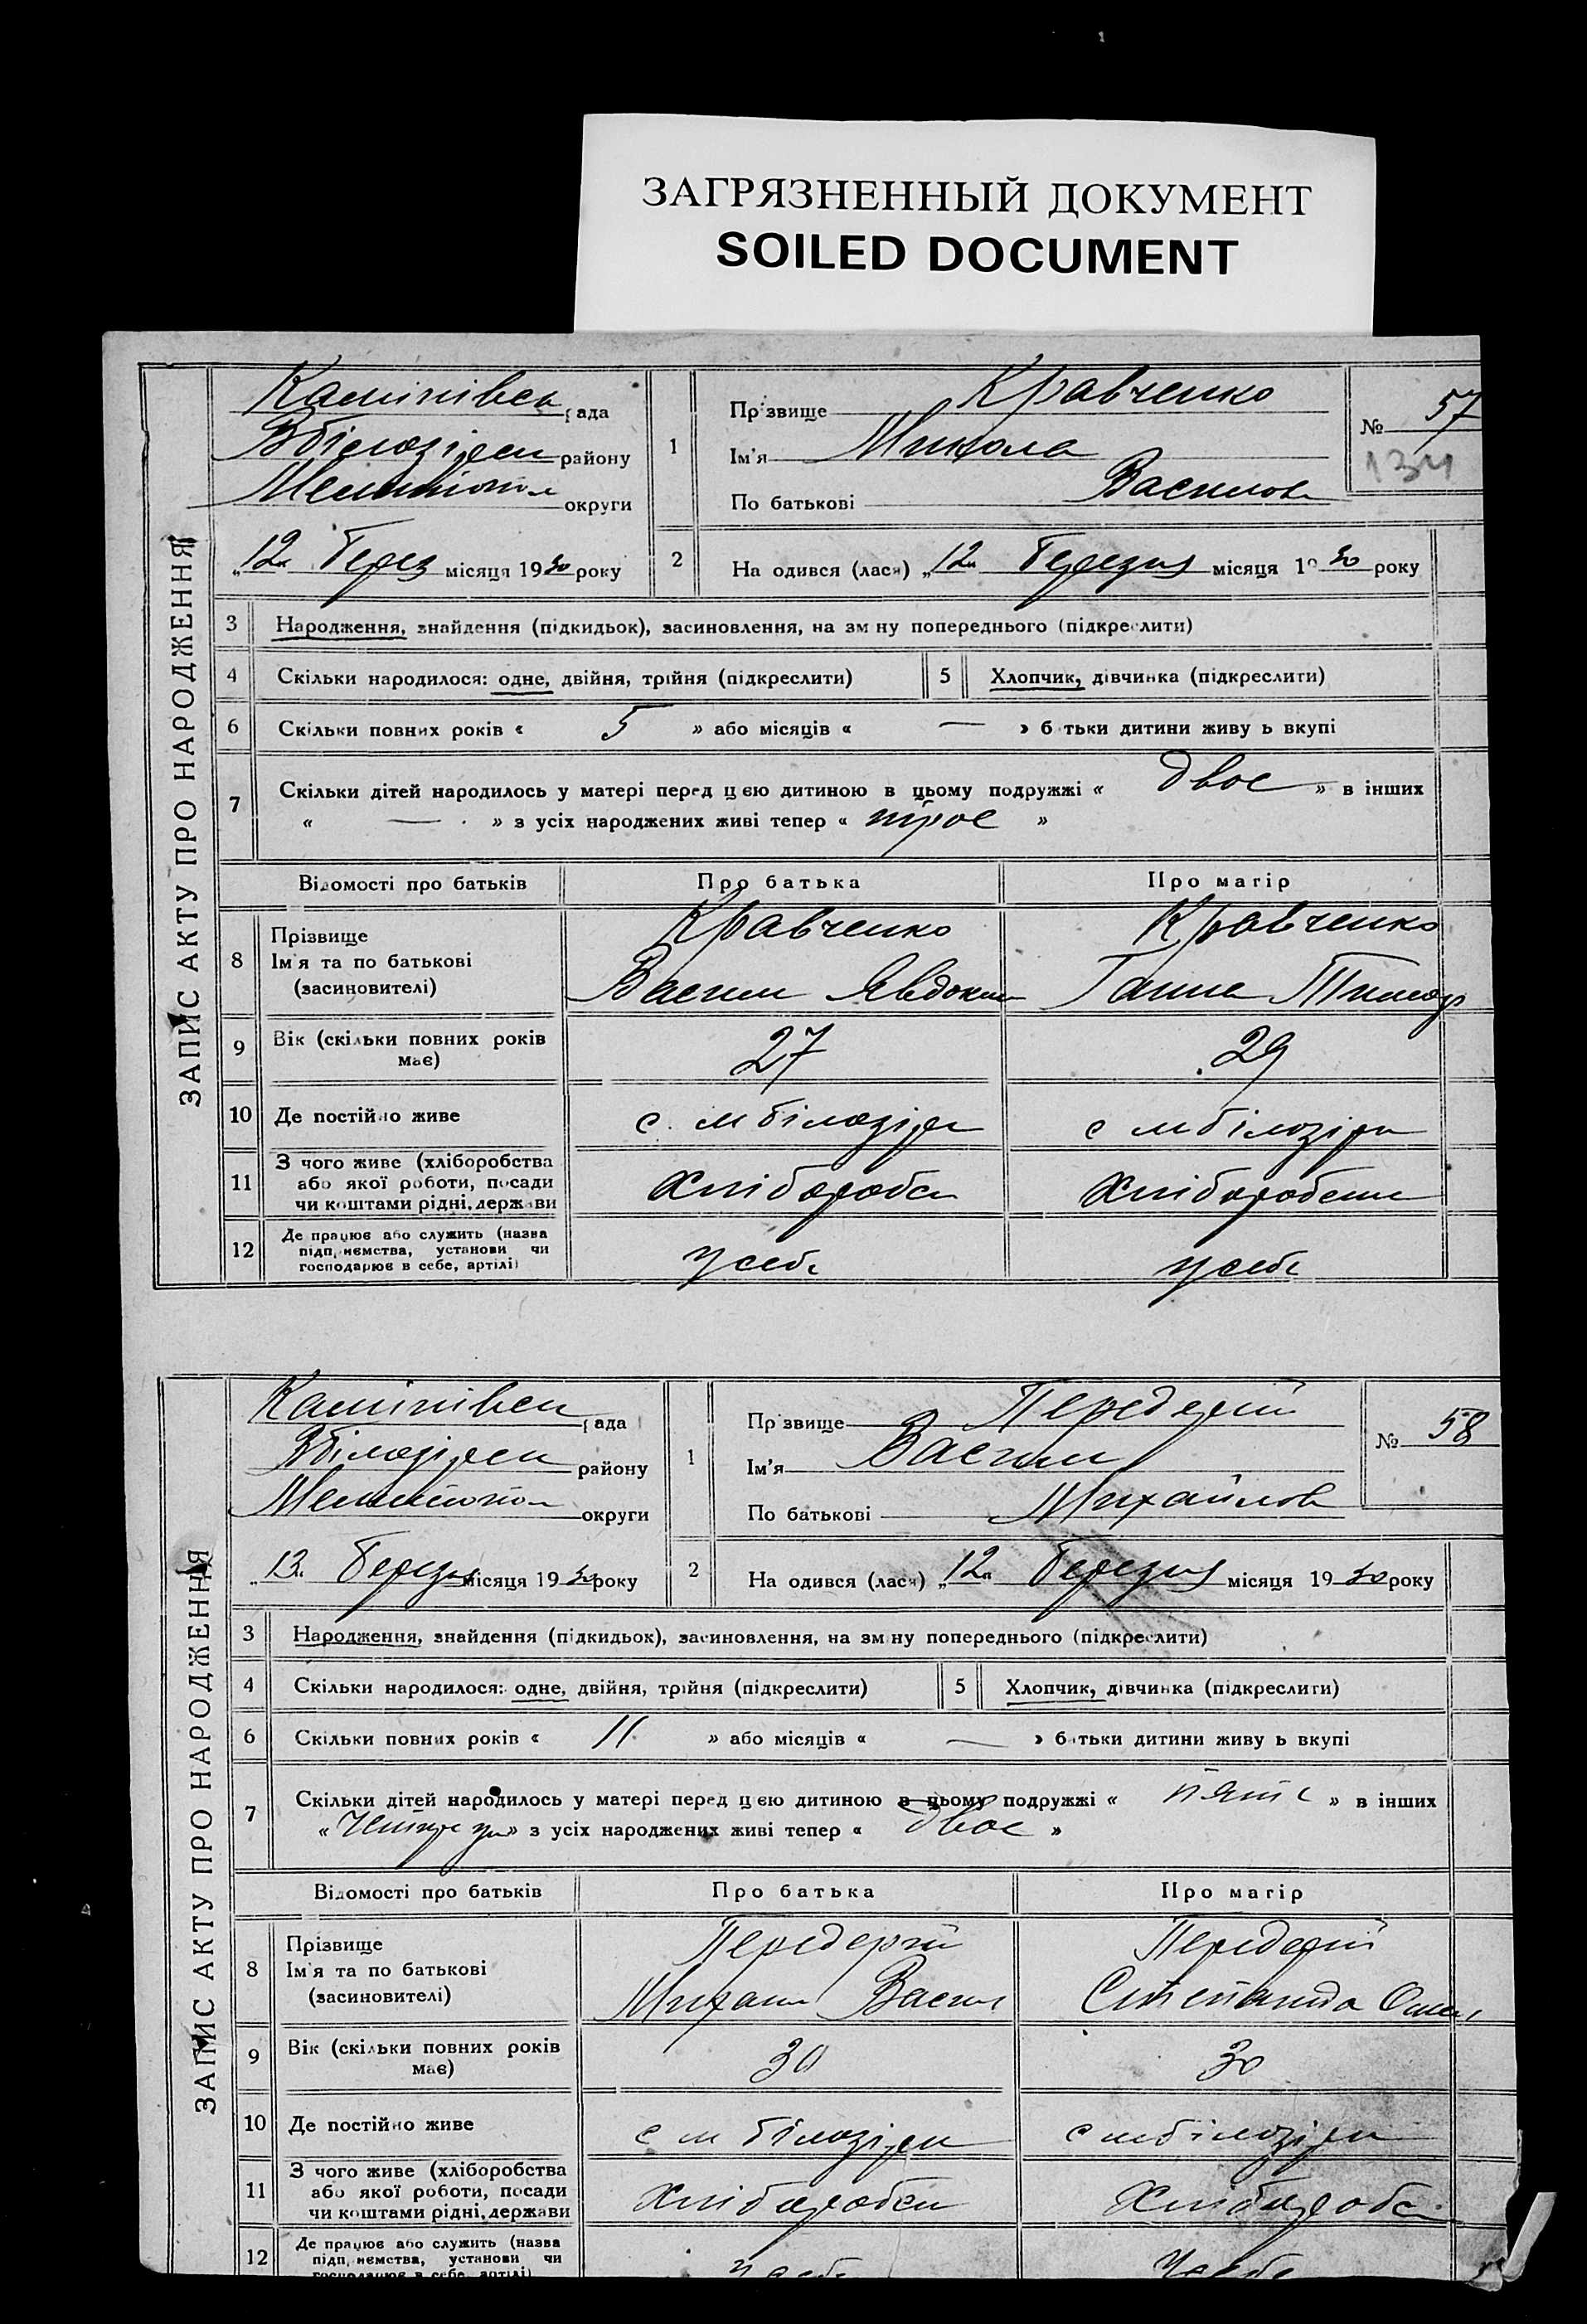 ЗАГРЯЗНЕННЫЙ ДОКУМЕНТ
SOILED DOCUMENT
ЗАПИС АКТУ ПРО НАРОДЖЕННЯ
рада
району
округи
„12„ Берез місяця 1930 року
1
Прізвище Кравченко
Ім'я Микола
По батькові Васильов
№ 57
134
2
На одився (лася) „12„ Березня місяця 1930 року
3 Народження, знайдення (підкидьок), засиновлення, на зміну попереднього (підкреслити)
4 Скільки народилося: одне, двійня, трійня (підкреслити)
5 Хлопчик, дівчинка (підкреслити)
6 Скільки повних років « 5 » або місяців « — » батьки дитини живуть вкупі
7 Скільки дітей народилось у матері перед цією дитиною в цьому подружжі « двое » в інших
« — » з усіх народжених живі тепер « трое »
Відомості про батьків Про батька Про матір
8 Прізвище
Ім'я та по батькові
(засиновителі)
Кравченко Кравченко
Васил Явдоким Ганна
9 Вік (скільки повних років має) 27 29
10 Де постійно живе с. м білозірки с м білозірки
11 З чого живе (хліборобства
або якої роботи, посади
чи коштами рідні, держави
Хлібороб
12 Де працює або служить (назва
підприємства, установи чи
господарює в себе, артілі)
у себе у себе
ЗАПИС АКТУ ПРО НАРОДЖЕННЯ
рада
району
округи
„13„ Березня місяця 1930 року
1
Прізвище Передерій
Ім'я Васил
По батькові Михайлов
№ 58
2
На одився (лася) „12„ Березня місяця 1930 року
3 Народження, знайдення (підкидьок), засиновлення, на зміну попереднього (підкреслити)
4 Скільки народилося: одне, двійня, трійня (підкреслити)
5 Хлопчик, дівчинка (підкреслити)
6 Скільки повних років « 11 » або місяців « — » батьки дитини живуть вкупі
7 Скільки дітей народилось у матері перед цією дитиною в цьому подружжі « пять » в інших
« » з усіх народжених живі тепер « двое »
Відомості про батьків Про батька Про матір
8 Прізвище
Ім'я та по батькові
(засиновителі)
Передерій Передерій
Михаил Васил Степанида
9 Вік (скільки повних років має) 30 30
10 Де постійно живе с м білозірки с м білозірки
11 З чого живе (хліборобства
або якої роботи, посади
чи коштами рідні, держави
12 Де працює або служить (назва
підприємства, установи чи
господарює в себе, артілі)
у себе у себе